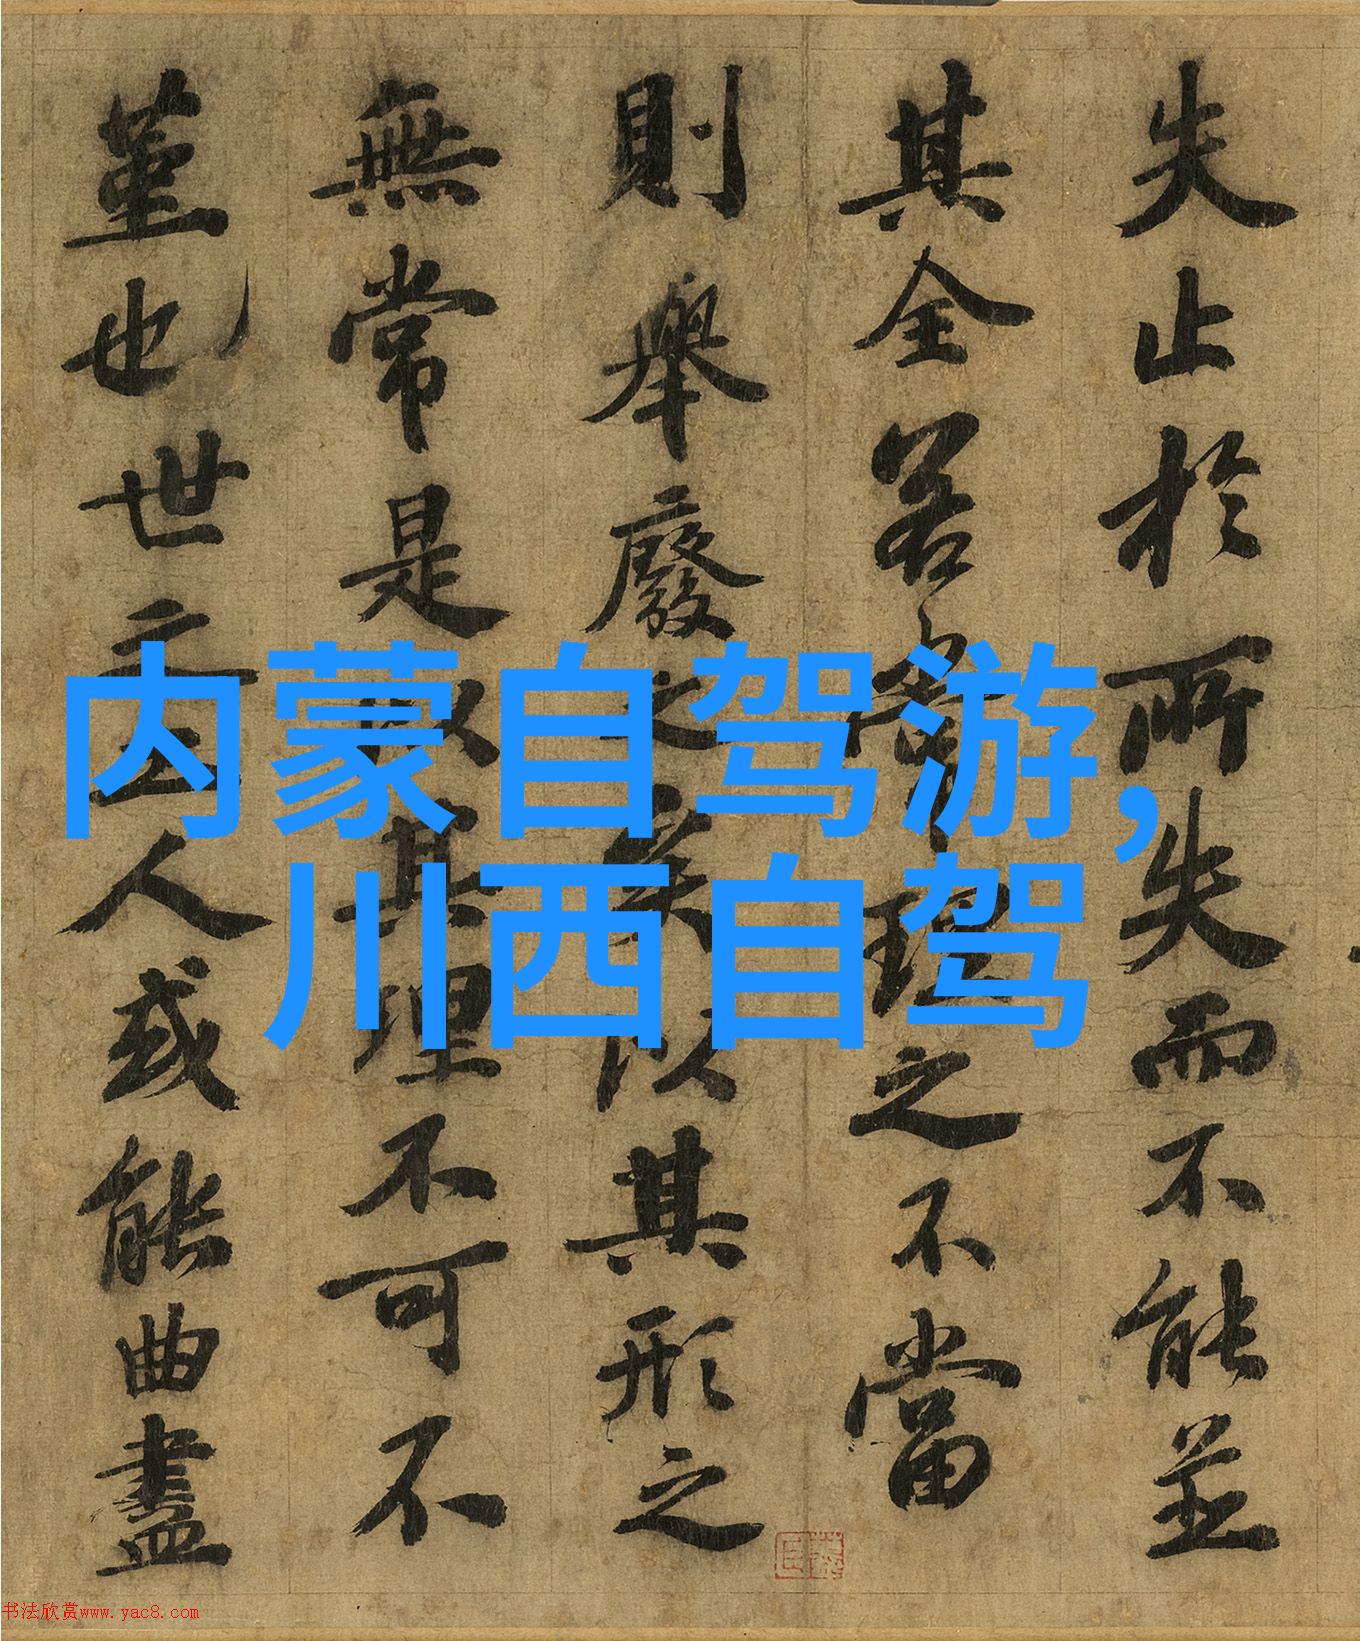 内蒙自驾游,
川西自驾
失止於所失而不能並
其全若常理之不當
則舉廢之矣以其形之
無常是以其理不可不
堇也世之工人或能曲盡
书法欣赏www.yac8.com